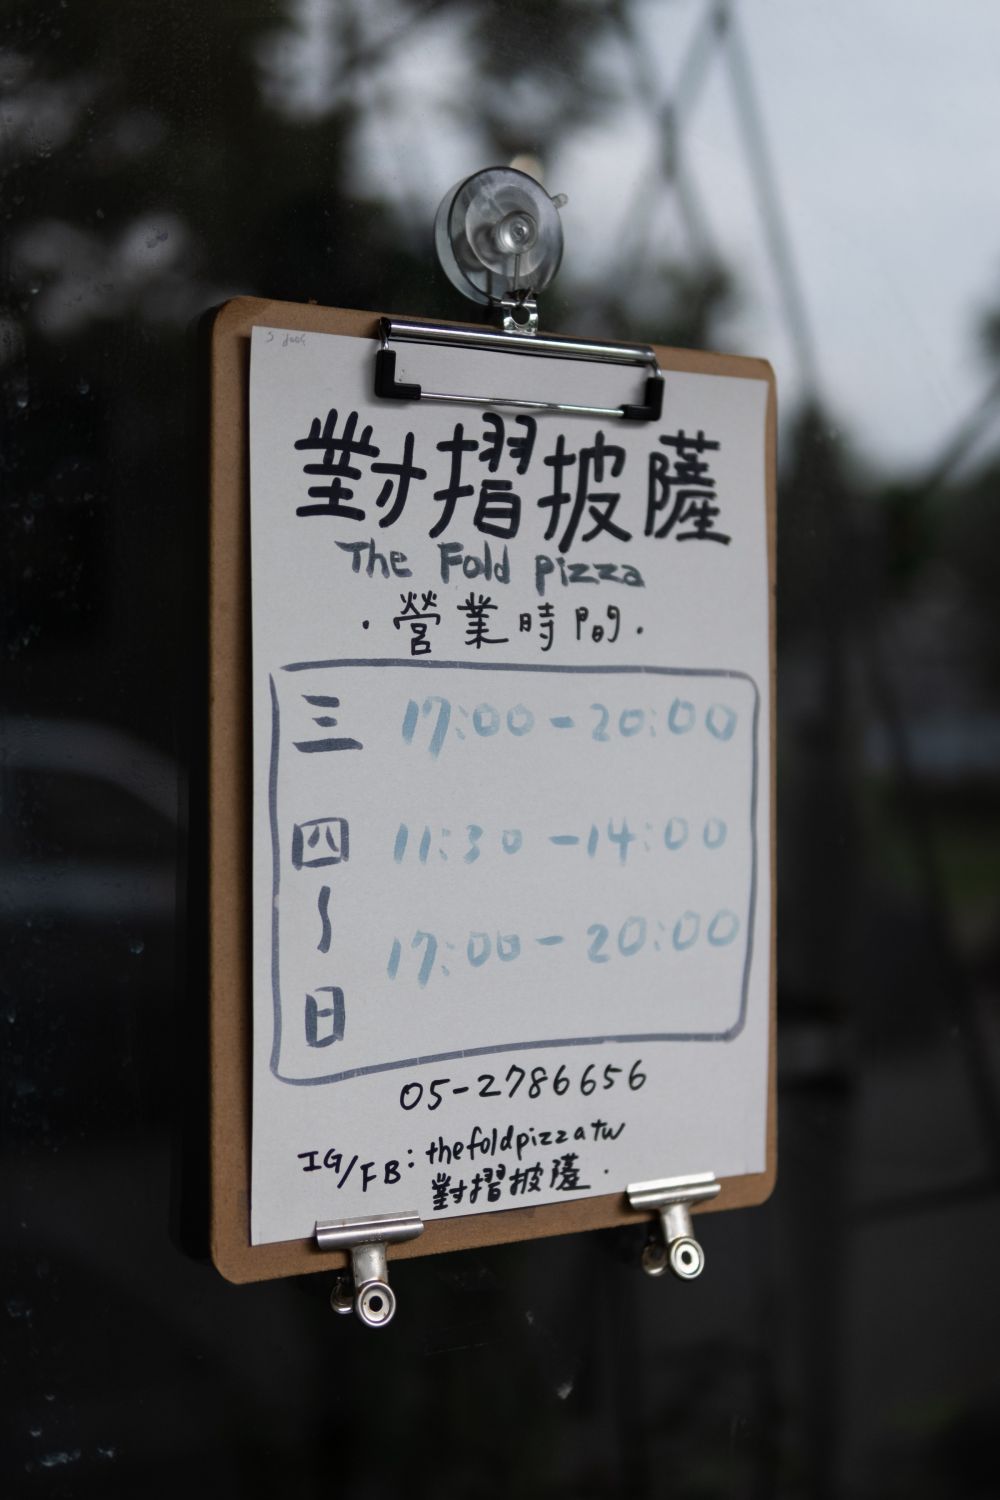 對摺披薩
The Fold pizza
·營業時間·
三 17:00-20:00
四~日 11:30-14:00
17:00-20:00
05-2786656
IG/FB: thefoldpizzatw
對摺披薩.